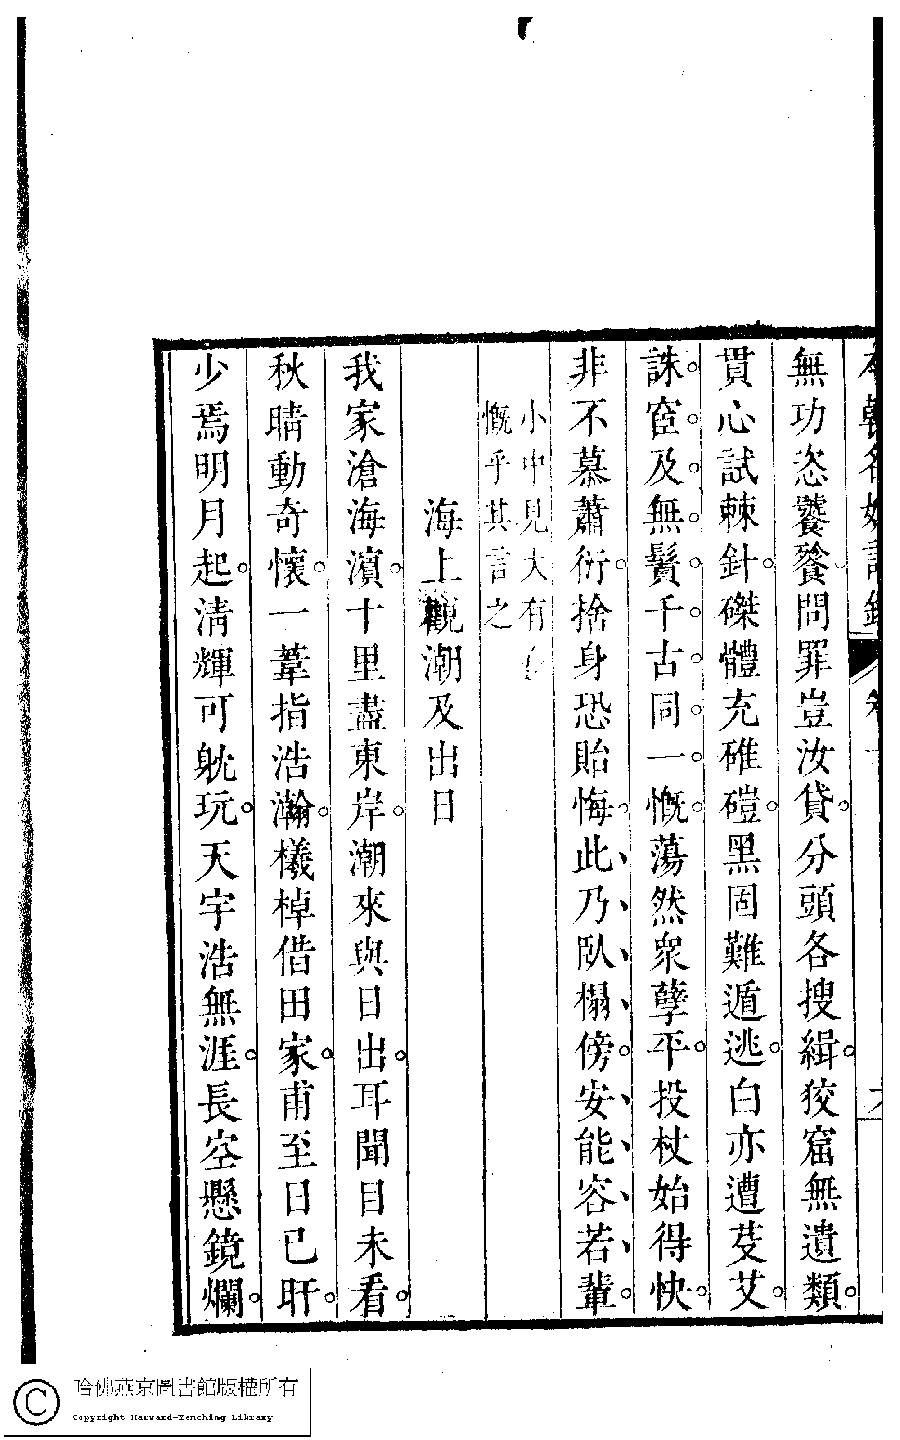 無功恣饕餮問罪豈汝貸分頭各搜緝狡窟無遺類
貫心試棘針磔體充碓磑黑固難遁逃白亦遭芟艾
誅宦及無鬚千古同一慨蕩然衆孽平投杖始得快
非不慕蕭衍捨身恐貽悔此乃臥榻傍安能容若輩
小中見大有
慨乎其言之
海上觀潮及出日
我家滄海濵十里盡東岸潮來與日出耳聞目未看
秋晴動奇懷一葦指浩瀚檥棹借田家甫至日已旰
少焉明月起淸輝可躭玩天宇浩無涯長空懸鏡爛
哈佛燕京圖書館版權所有
Copyright Harvard-Yenching Library